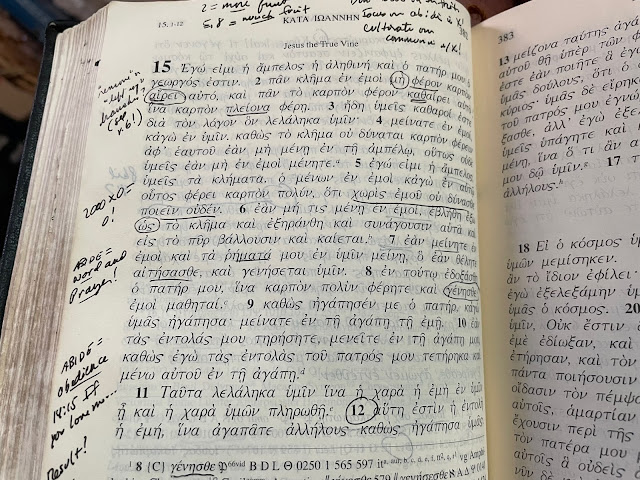 2 = more fruit
5, 8 = much fruit
focus on abiding
cultivate our
15. 1-12 ΚΑΤΑ ΙΩΑΝΝΗΝ 382
Jesus the True Vine
15 Ἐγώ εἰμι ἡ ἄμπελος ἡ ἀληθινή καὶ ὁ πατήρ μου ὁ
γεωργός ἐστιν. 2 πᾶν κλῆμα ἐν ἐμοὶ μὴ φέρον καρπὸν
αἴρει αὐτό, καὶ πᾶν τὸ καρπὸν φέρον καθαίρει αὐτὸ
ἵνα καρπὸν πλείονα φέρῃ. 3 ἤδη ὑμεῖς καθαροί ἐστε
διὰ τὸν λόγον ὃν λελάληκα ὑμῖν· 4 μείνατε ἐν ἐμοί,
κἀγὼ ἐν ὑμῖν. καθὼς τὸ κλῆμα οὐ δύναται καρπὸν φέρειν
ἀφ' ἑαυτοῦ ἐὰν μὴ μένῃ ἐν τῇ ἀμπέλῳ, οὕτως οὐδὲ
ὑμεῖς ἐὰν μὴ ἐν ἐμοὶ μένητε.ᵃ 5 ἐγώ εἰμι ἡ ἄμπελος,
ὑμεῖς τὰ κλήματα. ὁ μένων ἐν ἐμοὶ κἀγὼ ἐν αὐτῷ
οὗτος φέρει καρπὸν πολύν, ὅτι χωρὶς ἐμοῦ οὐ δύνασθε
ποιεῖν οὐδέν. 6 ἐὰν μή τις μένῃ ἐν ἐμοί, ἐβλήθη ἔξω
ὡς τὸ κλῆμα καὶ ἐξηράνθη καὶ συνάγουσιν αὐτὰ καὶ
εἰς τὸ πῦρ βάλλουσιν καὶ καίεται. 7 ἐὰν μείνητε ἐν
ἐμοὶ καὶ τὰ ῥήματά μου ἐν ὑμῖν μείνῃ, ὃ ἐὰν θέλητε
αἰτήσασθε, καὶ γενήσεται ὑμῖν. 8 ἐν τούτῳ ἐδοξάσθη
ὁ πατήρ μου, ἵνα καρπὸν πολὺν φέρητε καὶ γένησθε
ἐμοὶ μαθηταί. 9 καθὼς ἠγάπησέν με ὁ πατήρ, κἀγὼ
ὑμᾶς ἠγάπησα· μείνατε ἐν τῇ ἀγάπῃ τῇ ἐμῇ. 10 ἐὰν
τὰς ἐντολάς μου τηρήσητε, μενεῖτε ἐν τῇ ἀγάπῃ μου,
καθὼς ἐγὼ τὰς ἐντολὰς τοῦ πατρός μου τετήρηκα καὶ
μένω αὐτοῦ ἐν τῇ ἀγάπῃ.ᵈ
11 Ταῦτα λελάληκα ὑμῖν ἵνα ἡ χαρὰ ἡ ἐμὴ ἐν ὑμῖν
ᾖ καὶ ἡ χαρὰ ὑμῶν πληρωθῇ. 12 αὕτη ἐστὶν ἡ ἐντολὴ
ἡ ἐμή, ἵνα ἀγαπᾶτε ἀλλήλους καθὼς ἠγάπησα ὑμᾶς
8 {C} γένησθε 𝔓⁶⁶ᵛⁱᵈ B D L Θ 0250 1 565 597
2000 X 0 =
!
0!
ABIDE =
word and
Prayer!
ABIDE =
obedience
14:15 If
you love me...
Result!
383
13 μείζονα ταύτης
αὐτοῦ θῇ ὑπὲρ τῶν
ἐστε ἐὰν ποιῆτε ἃ
ὑμᾶς δούλους, ὅτι ὁ
κύριος· ὑμᾶς δὲ εἴρηκα
τοῦ πατρός μου
ξασθε, ἀλλ' ἐγὼ
ὑμεῖς ὑπάγητε καὶ
μένῃ, ἵνα ὅ τι ἂν
μου δῷ ὑμῖν. 17
ἀλλήλους.
18 Εἰ ὁ κόσμος
ὑμῶν μεμίσηκεν.
ἂν τὸ ἴδιον ἐφίλει·
ἐγὼ ἐξελεξάμην
ὑμᾶς ὁ κόσμος. 20
ὑμῖν, Οὐκ ἔστιν
ἐμὲ ἐδίωξαν, καὶ
ἐτήρησαν, καὶ τὸν
πάντα ποιήσουσιν
οἴδασιν τὸν
αὐτοῖς, ἁμαρτίαν
ἔχουσιν περὶ τῆς
τὸν πατέρα μου
αὐτοῖς ἃ οὐδεὶς